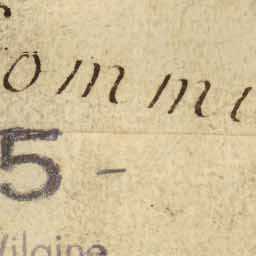 omm
5 -
ilaine